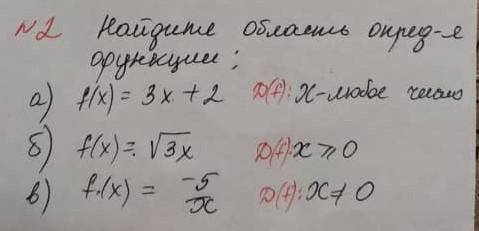 №2 Найдите область опред-я
функции;
а) f(x) = 3x + 2 D(f): x-любое число
б) f(x) = √3x D(f): x ⩾ 0
в) f(x) = -5/x D(f): x ≠ 0